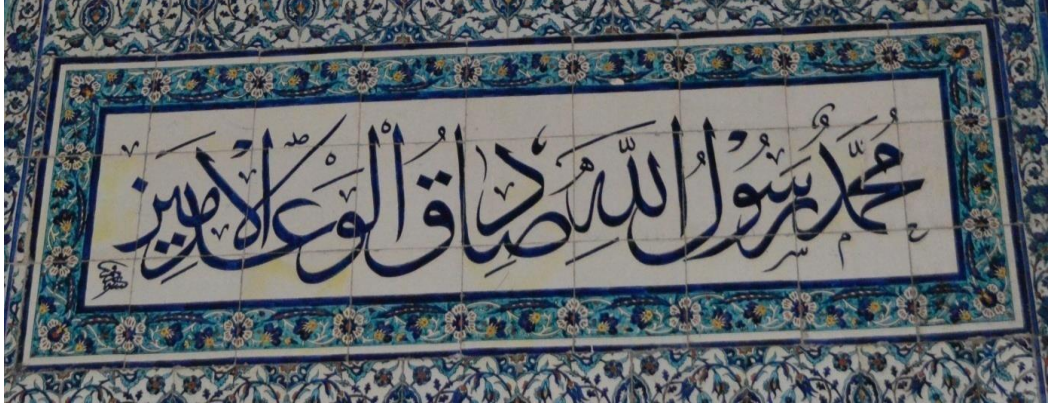 مُحَمَّدٌ رَسُوْلُ اللّٰهِ صَادِقُ الْوَعْدِ الْاَمِين